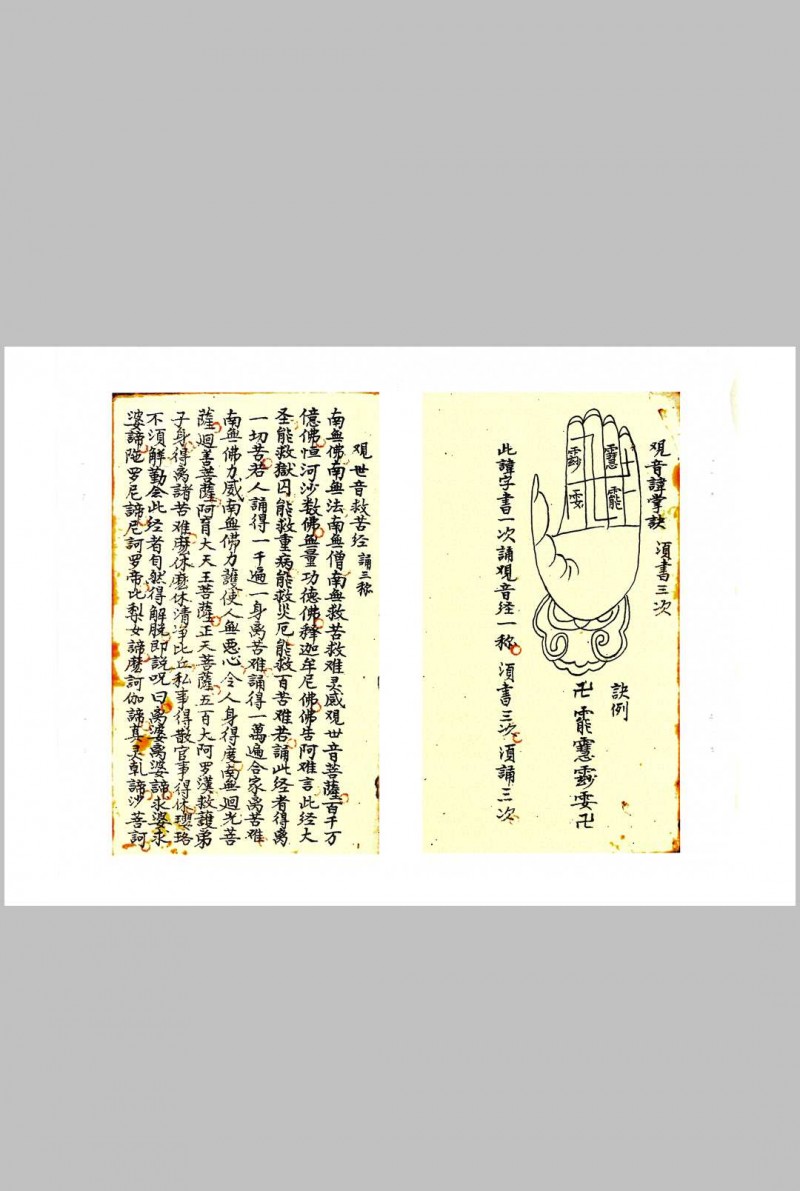 觀音諱掌訣 須書三次
靈 霛
訣例
卍
卍
此諱字書一次誦觀音経一称 須書三次 須誦三次
觀世音救苦经 誦三称
南無佛南無法南無僧南無救苦救难灵感觀世音菩薩百千万
億佛恒河沙数佛無量功德佛釋迦牟尼佛佛告阿难言此经大
圣能救獄囚能救重病能救災厄能救百苦难若誦此经者得离
一切苦若人誦得一千遍一身离苦难誦得一萬遍合家离苦难
南無佛力威南無佛力護使人無惡心令人身得度南無迴光菩
薩迴善菩薩阿育大天王菩薩正天菩薩五百大阿罗漢救護弟
子身得离諸苦难麽休麽休清净比丘私事得散官事得休瓔珞
不須解勤念此经者自然得解脱即説呪曰离婆离婆諦求婆求
婆諦陀罗尼諦尼訶罗帝比梨女諦麽訶伽諦真灵乹諦沙菩訶